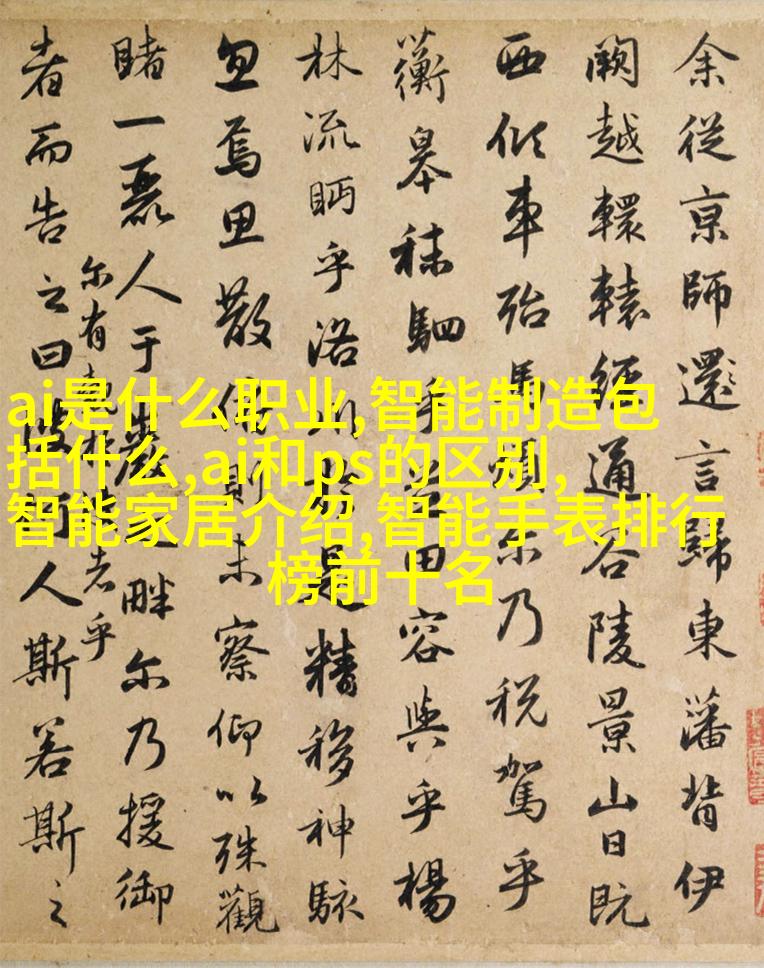 余從京師還言歸東藩背伊
闕越轘轅經通谷陵景山日既
西傾車殆馬煩尔乃税駕乎
蘅皋秣駟乎芝田容與乎楊
林流眄乎洛川於是精移神駭
忽焉思散俯則未察仰以殊觀
睹一麗人于巖之畔尔乃援御
者而告之曰彼何人斯若斯之
尔有者乎
ai是什么职业,智能制造包
括什么,ai和ps的区别,
智能家居介绍,智能手表排行
榜前十名